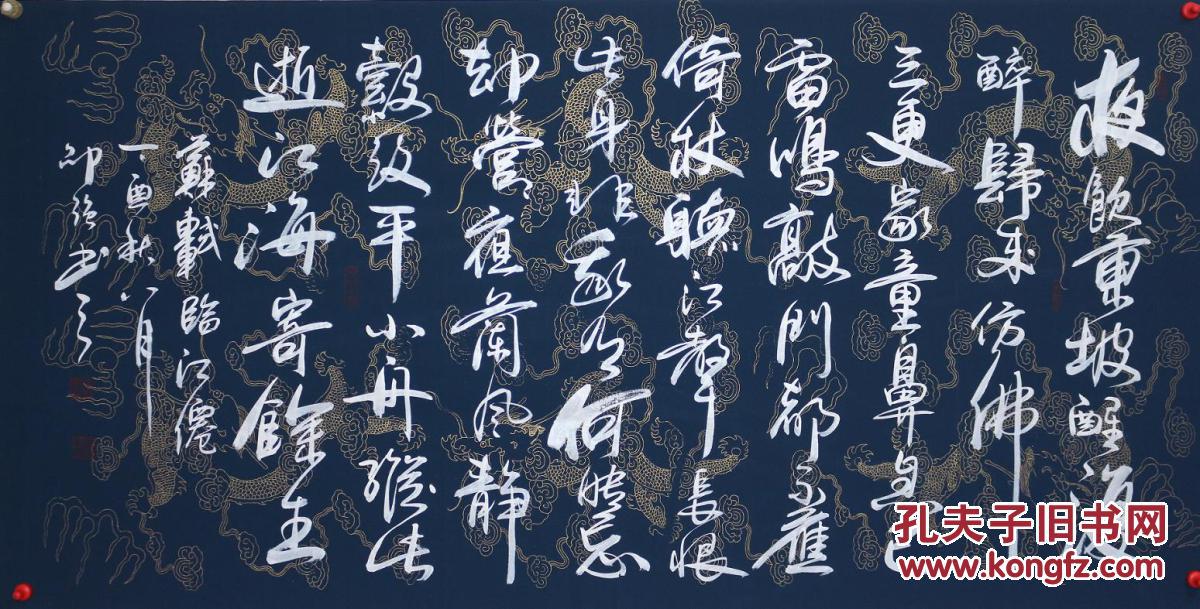 夜飲東坡醒復
醉歸來仿佛
三更家童鼻息已
雷鳴敲門都不應
倚杖聽江聲長恨
此身非我有何時忘
却營々夜闌風靜
縠紋平小舟從此
逝江海寄餘生
蘇軾臨江僊
丁酉秋八月
强书
孔夫子旧书网
www.kongfz.com